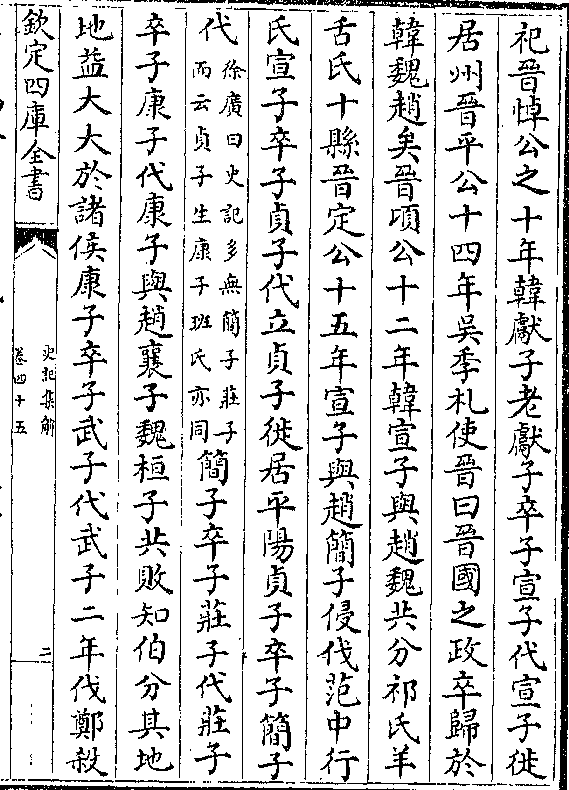 祀晉悼公之十年韓獻子老獻子卒子宣子代宣子徙
居州晉平公十四年吳季札使晉曰晉國之政卒歸於
韓魏趙矣晉頃公十二年韓宣子與趙魏共分祁氏羊
舌氏十縣晉定公十五年宣子與趙簡子侵伐范中行
氏宣子卒子貞子代立貞子徙居平陽貞子卒子簡子
代徐廣曰史記多無簡子莊子而云貞子生康子班氏亦同簡子卒子莊子代莊子
卒子康子代康子與趙襄子魏桓子共敗知伯分其地
地益大大於諸侯康子卒子武子代武子二年伐鄭殺
欽定四庫全書
史記集解
卷四十五
二